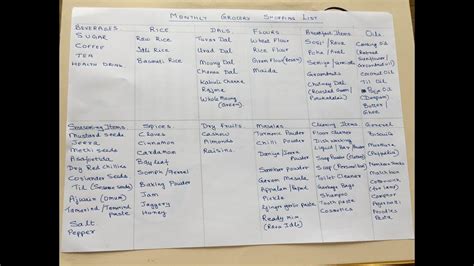 MONTHLY GROCERY SHOPPING LIST
BEVERAGES
SUGAR
COFFEE
TEA
HEALTH DRINK
RICE
RAW RICE
Idli Rice
Basmati Rice
DALS
Turor Dal
Urad Dal
Moong Dal
Channa Dal
Kabuli Channa
Rajma
Whole Moong
(Green)
FLOURS
Wheat Flour
Rice Flour
Gram Flour (Besan)
Maida
Breakfast Items
Sooji / Rava
Poha / Aval
Semiya /
Groundnuts
Chutney Dal
(Roasted Gram /
Pottukadalai)
Oils
Cooking Oil
(Refined
Sunflower /
Groundnut oil)
Coconut Oil
Til Oil
Oil
Butter /
Ghee
Seasoning Items
Mustard Seeds
Jeera
Methi Seeds
Asafoetida
Dry Red chillies
Coriander Seeds
Til (Sesame seeds)
Ajwain (Omum)
Tamarind / Tamarind Paste
Salt
Pepper
Spices
Cloves
Cinnamon
Cardamom
Bay leaf
Baking Powder
Jam
Jaggery
Honey
Dry Fruits
Cashew
Almonds
Raisins
Masalas
Turmeric Powder
Chilli Powder
Daniya / Jeera
Powder
Sambar Powder
Garam Masala
Appalam / Papad
Pickle
Ginger garlic Paste
Ready mix
(Rava Idli)
Cleaning Items
Floor Cleaner
Dish washing
Liquid / Bar / Powder
Soap Powder (Detergent)
Soap (Personal use)
Toilet Cleaner
Garbage Bags
Shampoo
Tooth paste
Cosmetics
General
Biscuits
Match box
Camphor
Noodles
Pasta